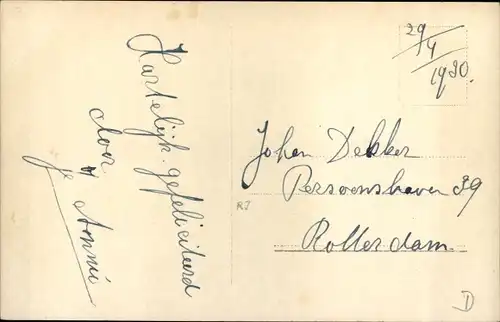 Hartelijk gefeliciteerd
door
Annie
29/4 1930.
Johan Dekker
Persoonshaven 39
Rotterdam.
RJ
D